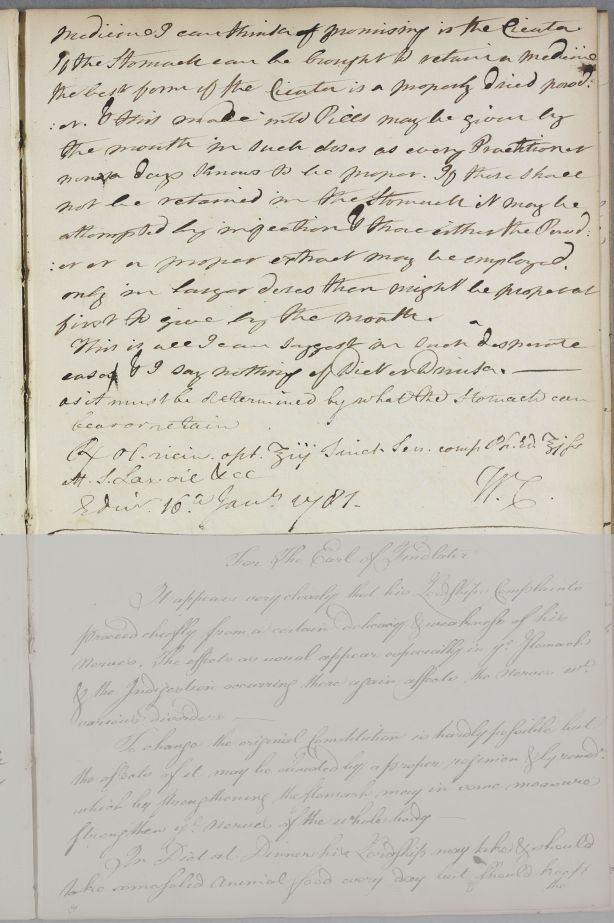 Medicine I can think of promising is the Cicuta
If the Stomach can be brought to retain a Medicine
the best form of the Cicuta is a properly dried powd:
:er. & this made into Pills may be given by
the mouth in such doses as every Practitioner
now a days knows to be proper. If these shall
not be retained in the Stomach it may be
attempted by injection & there either the Powd:
:er or a proper extract may be employed
only in larger doses than might be proper at
first to give by the mouth.
This is all I can suggest in such a desperate
case & I say nothing of Diet or Drinks. —
as it must be determined by what the Stomach can
bear or retain
Rx Ol. ricin. opt. ℥iij Tinct. Sen. comp. Ph. Ed. ℥jſs
M. S. Lax. oil &cc
Edinr. 16th Janry 1781. W. C.
For The Earl of Findlater
It appears very clearly that his Lordships Complaints
proceed chiefly from a certain delicacy & weakness of his
nerves, The effects as usual appear especially in ye Stomach
& the Indigestion occurring there again affects the nerves wt
various disorders —
To change the original Constitution is hardly possible but
the effects of it may be avoided by a proper regimen & by remeds
which by strengthening the stomach, may in some measure
strengthen ye nerves of the whole body —
In Diet at Dinner his Lordship may take & should
take some solid Animal food every day but should keep
the